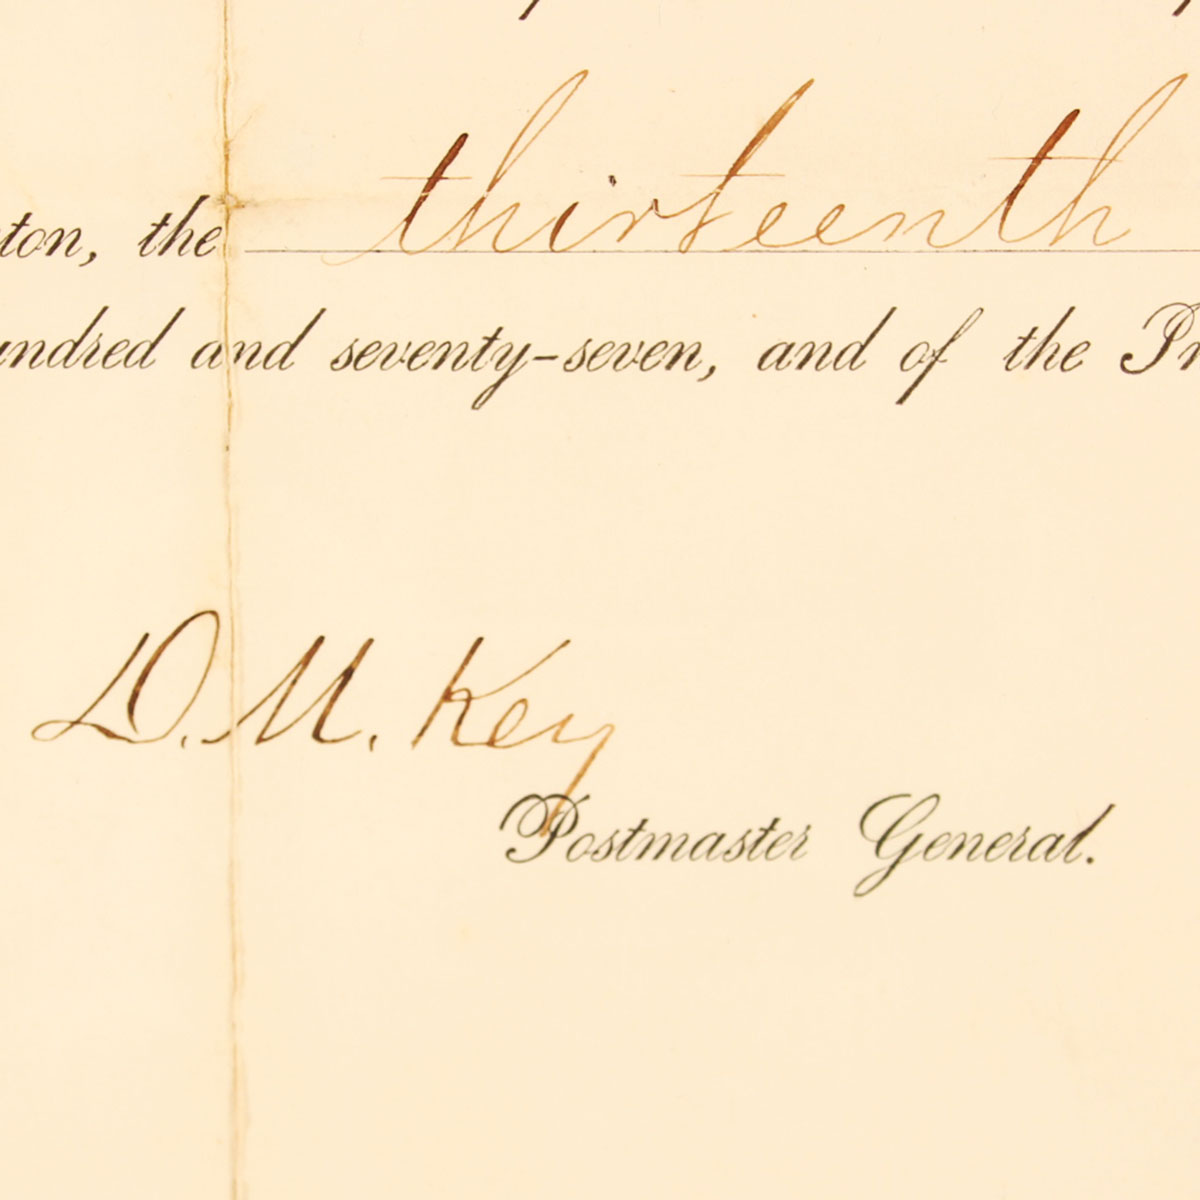 ton, the thirteenth
undred and seventy-seven, and of the Pr
D. M. Key
Postmaster General.